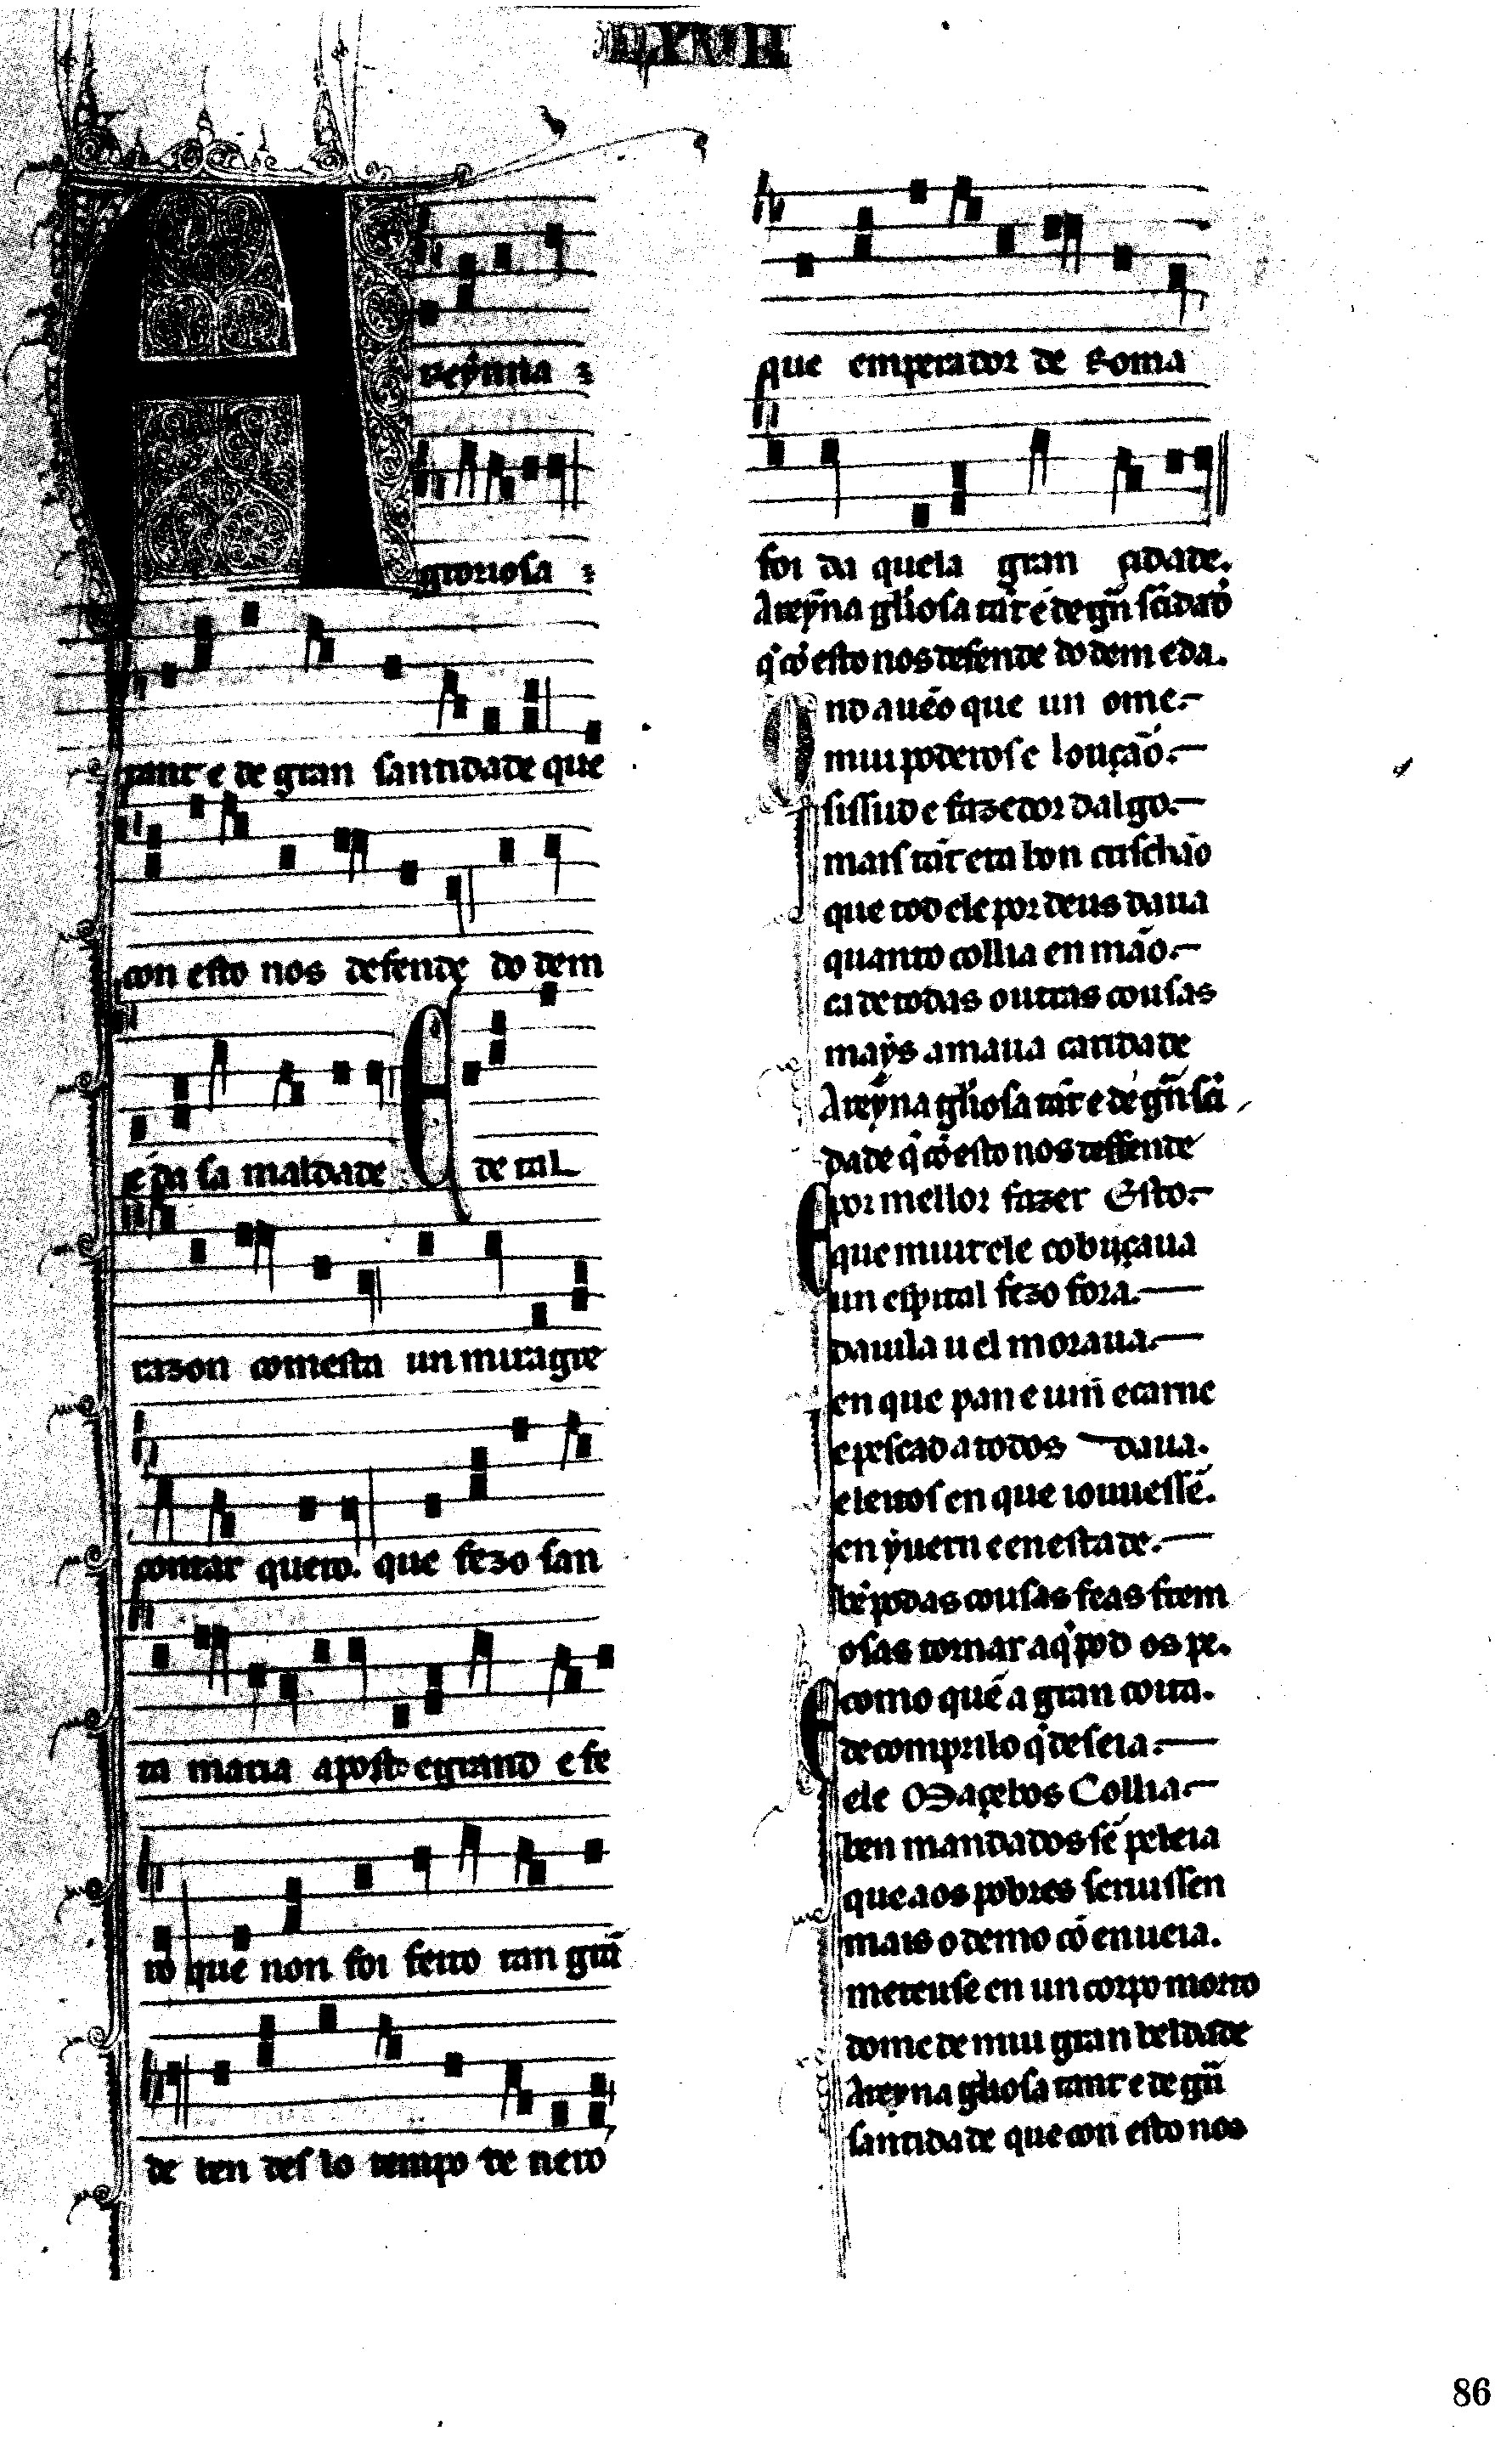 LXVII
A
Reỹnna
gloriosa
tant e de gran santidade que
con esto nos defende do dem
e da sa maldade E de tal
razon comesta un miragre
contar quero. que fezo san
ta maria aposto e grand e fe
ro que non foi feito tan grã
de ben des lo tempo de nero
que emperador de Roma
foi da quela gran çidade.
A reỹna gl'iosa tãt e de gr̃n sc̃idade
q' cõ esto nos defende do dem e da.
Ond auẽo que un ome.
mui poderos e loução.
sissud e fazedor dalgo.
mais tãt era bon crischão
que tod ele por deus daua
quanto collia en mão.
ca de todas outras cousas
maỹs amaua caridade
A reỹna gl'iosa tãt e de gr̃n sc̃i
dade q' cõ esto nos deffende
E por mellor fazer Esto.
que muit ele cobiiçaua
un espital fezo fora.
dauila u el moraua.
en que pan e uiñ e carne
e pescad a todos daua.
e leitos en que iouuessẽ.
en ỹuern e en estade.
bẽ podas cousas feas frem
osas tornar aq' pod os pe.
E como quẽ a gran coita.
de comprilo q' deseia.
ele Mãçebos Collia.
ben mandados sẽ peleia
que aos pobres seruissen
mais o demo cõ enueia.
meteuse en un corpo morto
dome de mui gran beldade
A reyna gl'iosa tant e de gr̃n
santidade que con esto nos
86